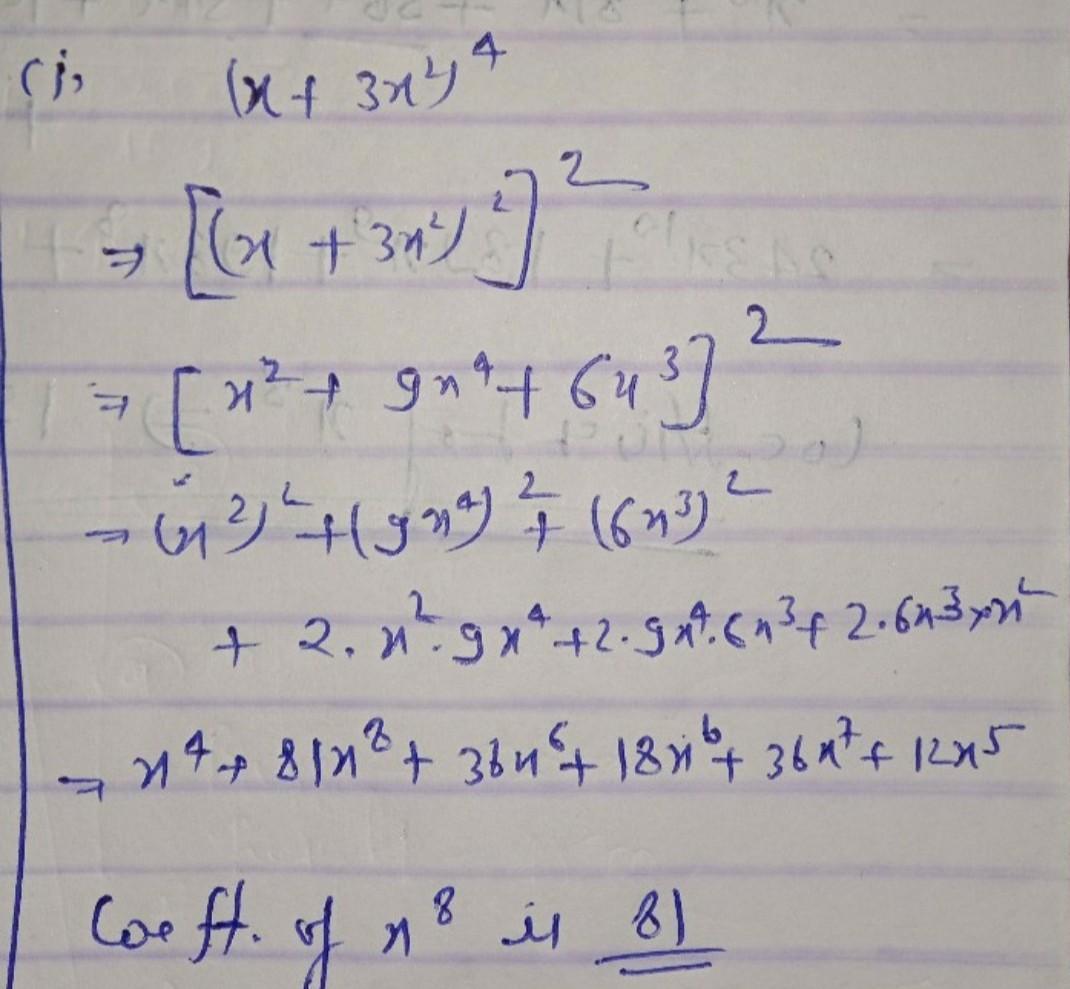 (i) (x + 3x²)⁴
⇒ [(x + 3x²)²]²
⇒ [x² + 9x⁴ + 6x³]²
⇒ (x²)² + (9x⁴)² + (6x³)²
+ 2. x². 9x⁴ + 2. 9x⁴. 6x³ + 2. 6x³ × x²
⇒ x⁴ + 81x⁸ + 36x⁶ + 18x⁶ + 36x⁷ + 12x⁵
Coefft. of x⁸ is 81